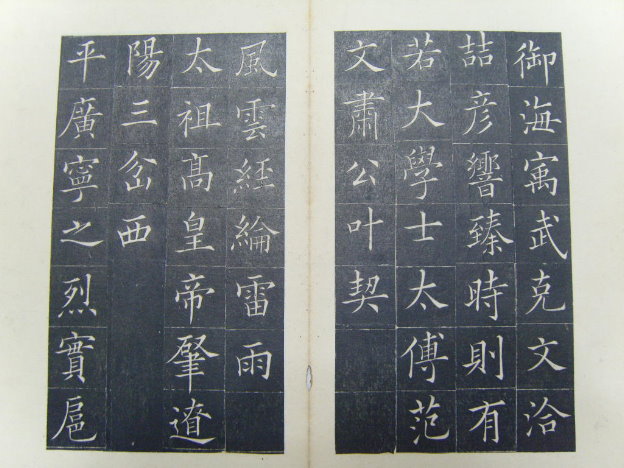 御海寓武克文洽
喆彦響臻時則有
若大學士太傅范
文肅公叶契
風雲經綸雷雨
太祖高皇帝肇遼
陽三岔西
平廣寧之烈實扈